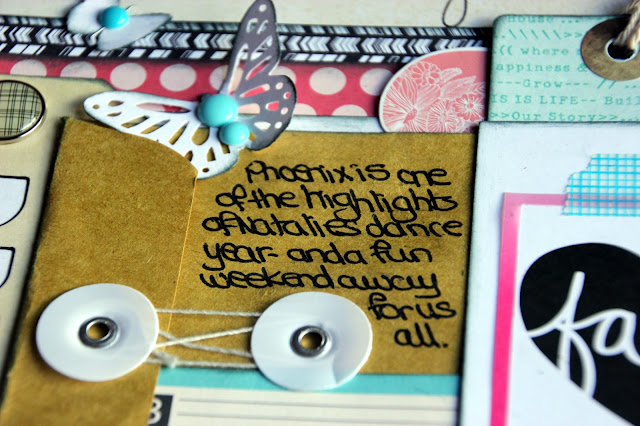 House...
.\\\\\>>
.(( where
happiness &
--Grow--- //
IS IS LIFE-- Buil
>>Our Story>>
Phoenix is one
of the highlights
of Natalies dance
year- and a fun
weekend away
for us
all.
fa